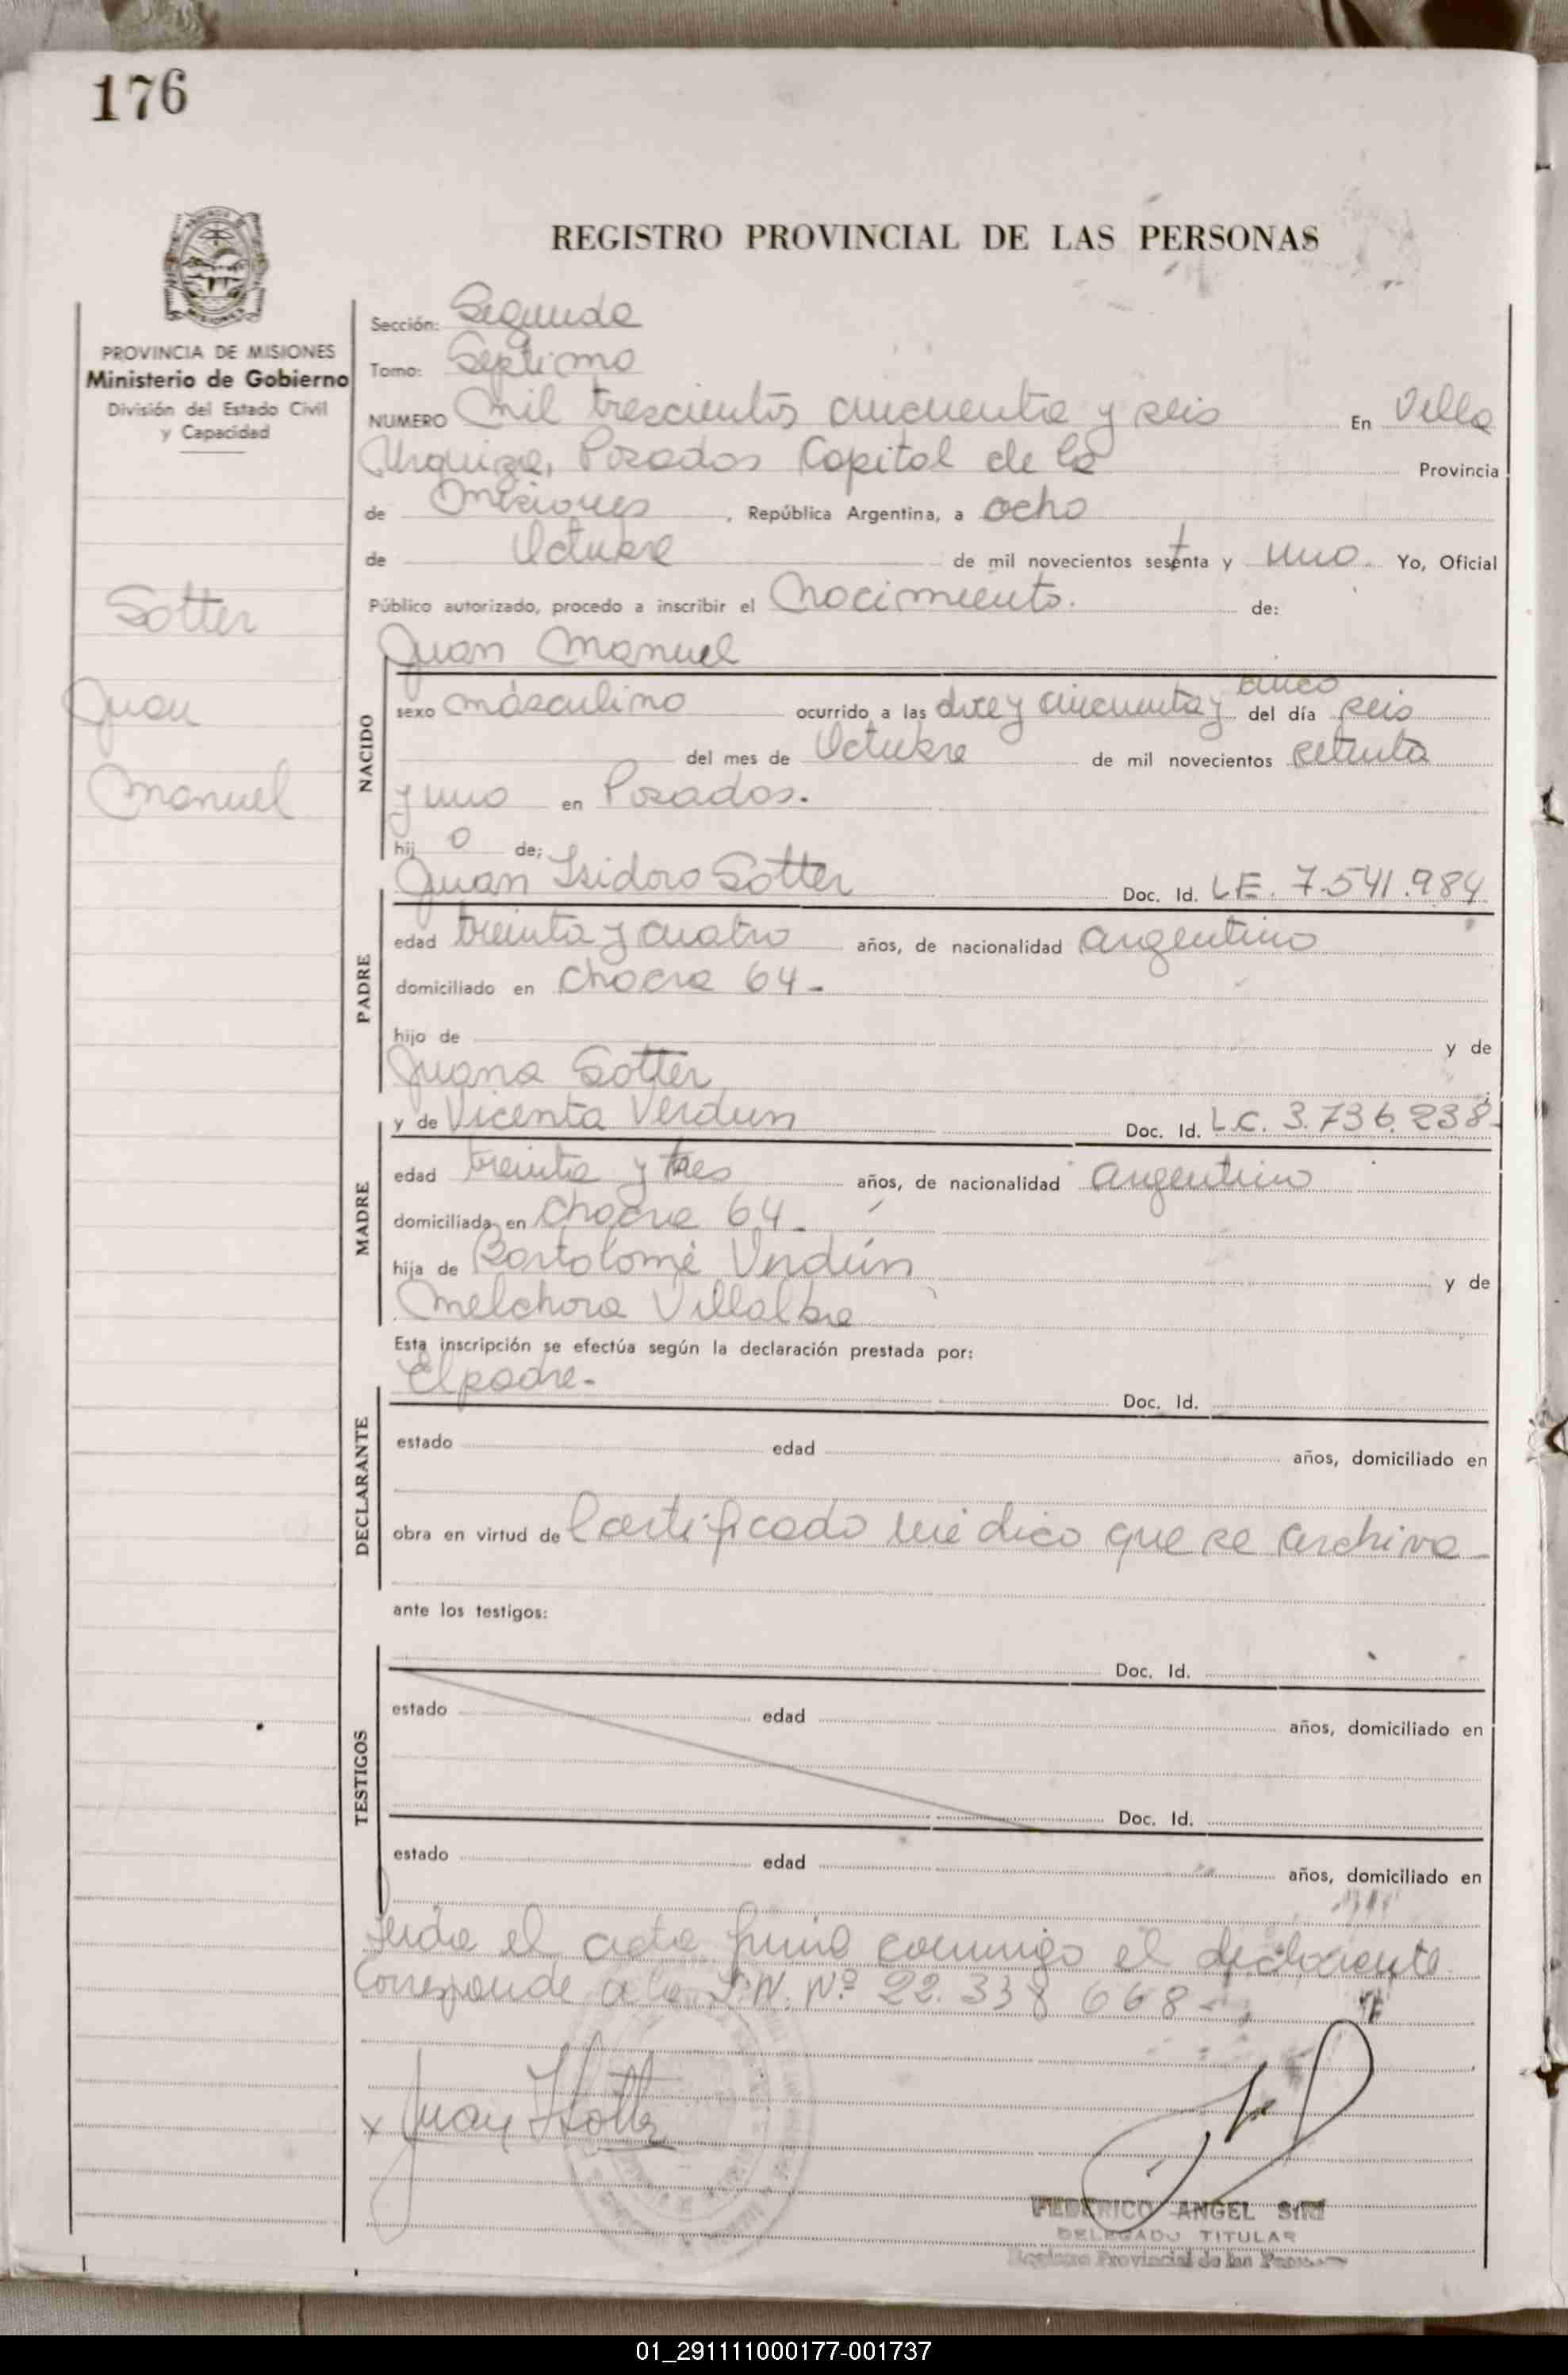 176
REGISTRO PROVINCIAL DE LAS PERSONAS
PROVINCIA DE MISIONES
Ministerio de Gobierno
División del Estado Civil
y Capacidad
Sotter
Juan
Manuel
Sección: Segunda
Tomo: Septimo
NUMERO Mil trescientos cincuenta y seis En Villa
Urquiza, Posadas Capital de la Provincia
de Misiones, República Argentina, a ocho
de Octubre de mil novecientos setenta y uno. Yo, Oficial
Público autorizado, procedo a inscribir el Nacimiento. de:
Juan Manuel
NACIDO
cinco
sexo másculino ocurrido a las y cincuenta y del día seis
del mes de Octubre de mil novecientos setenta
y uno en Posadas.
hij o de;
Juan Isidoro Sotter Doc. Id. L.E. 7.541.984
PADRE
edad treinta y cuatro años, de nacionalidad argentino
domiciliado en Chacra 64-
hijo de y de
Juana Sotter
y de Vicenta Verdun Doc. Id. L.C. 3.736.238-
MADRE
edad treinta y tres años, de nacionalidad argentino
domiciliada en Chacra 64-
hija de Bartolomé Verdún y de
Melchora Villalba
Esta inscripción se efectúa según la declaración prestada por:
El padre- Doc. Id.
DECLARANTE
estado edad años, domiciliado en
obra en virtud de Certificado médico que se archiva-
ante los testigos:
Doc. Id.
TESTIGOS
estado edad años, domiciliado en
Doc. Id.
estado edad años, domiciliado en
Leida el acta firma conmigo el declarante
Corresponde a la Nº 22.338 668-
x Juan Sotter
FEDERICO ANGEL
DELEGADO TITULAR
Registro Provincial de las
01_291111000177-001737